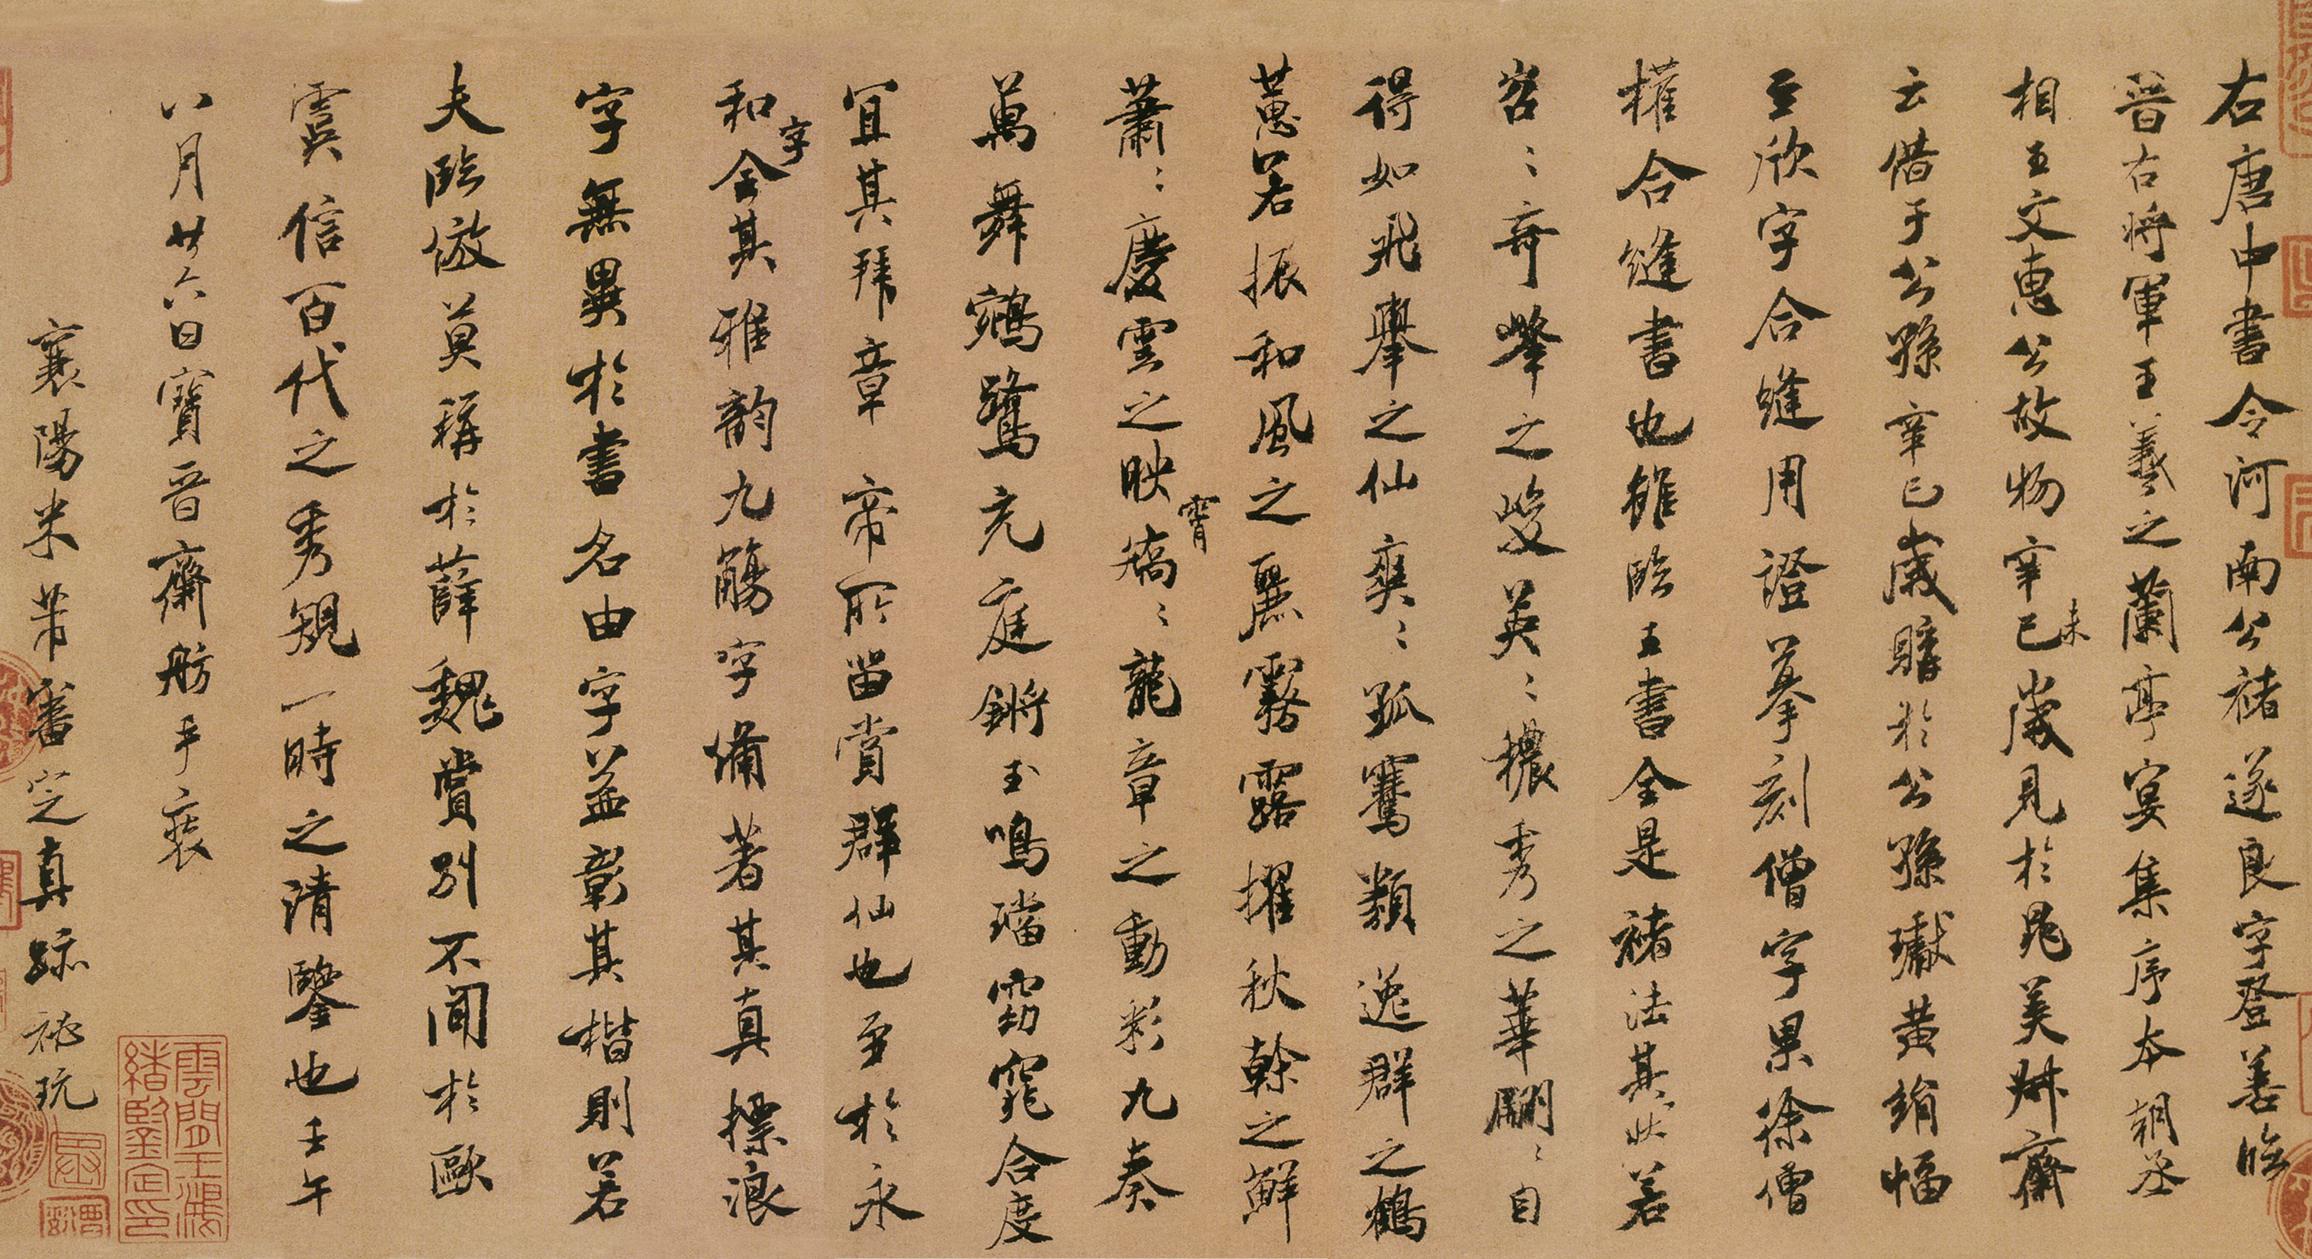 右唐中書令河南公褚遂良字登善臨
晉右將軍王羲之蘭亭宴集序本朝丞
相王文惠公故物辛巳未歲見於晁美叔齋
云借于公孫辛巳歲購於公孫瓛黃絹幅
至欣字合縫用證摹刻僧字果徐僧
權合縫書也雖臨王書全是褚法其狀若
岧〻奇峯之峻英〻穠秀之華翩〻自
得如飛舉之仙爽〻孤騫類逸群之鶴
蕙若振和風之麗霧露擢秋榦之鮮
蕭〻慶雲之映霄矯〻龍章之動彩九奏
萬舞鵷鷺充庭鏘玉鳴璫窈窕合度
宜其拜章帝所留賞群仙也至於永
和字全其雅韻九觴字備著其真標浪
字無異於書名由字益彰其楷則若
夫臨倣莫稱於薛魏賞別不聞於歐
虞信百代之秀規一時之清鑒也壬午
八月廿六日寶晉齋舫手裝
襄陽米芾審定真跡秘玩
雲間王鴻
緒鑒定印